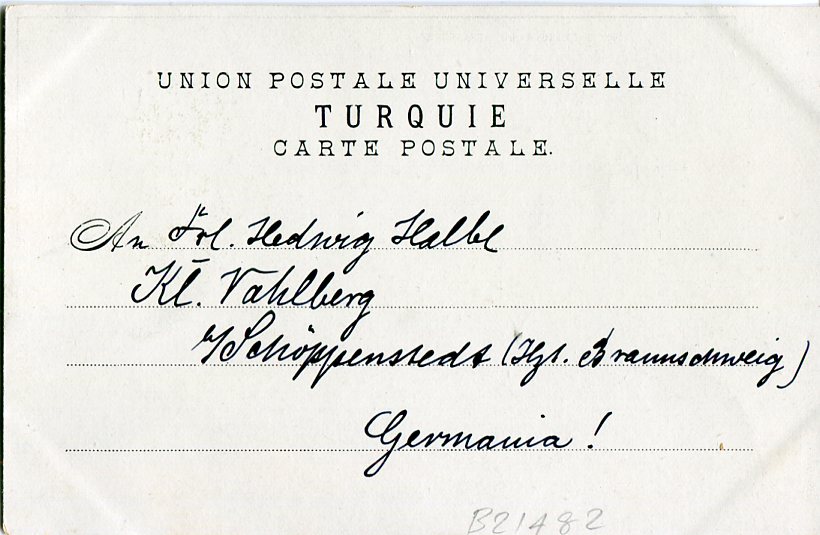 UNION POSTALE UNIVERSELLE
TURQUIE
CARTE POSTALE.
An Frl. Hedwig Halbe
Kl. Vahlberg
b/Schöppenstedt (Hzt. Braunschweig)
Germania!
B21482